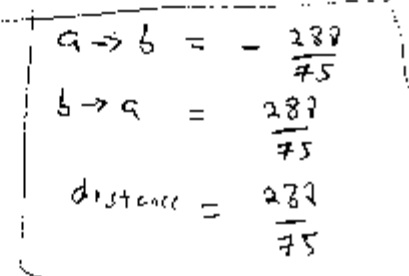 a → b = - 288/75
b → a = 288/75
distance = 288/75